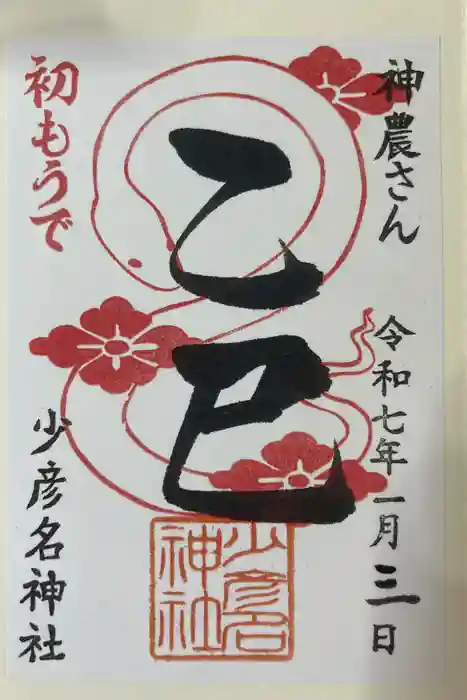 神農さん
令和七年一月三日
乙巳
少彦名
神社
初もうで
少彦名神社